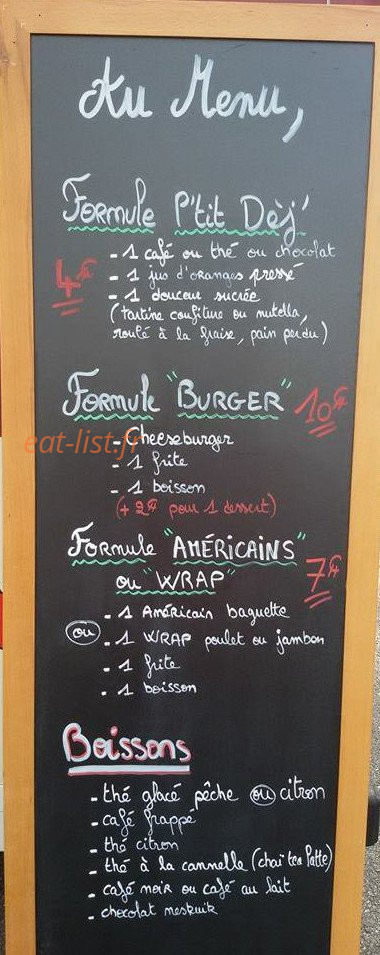 Au Menu,
FORMULE P'tit Dèj'
4€
- 1 café ou thé ou chocolat
- 1 jus d'oranges pressé
- 1 douceur sucrée
(tartine confiture ou nutella,
roulé à la fraise, pain perdu)
FORMULE "BURGER" 10€
- Cheeseburger
eat-list.fr
- 1 frite
- 1 boisson
(+ 2€ pour 1 dessert)
FORMULE "AMÉRICAINS"
ou "WRAP"
7€
- 1 Américain baguette
ou - 1 WRAP poulet ou jambon
- 1 frite
- 1 boisson
Boissons
- thé glacé pêche ou citron
- café frappé
- thé citron
- thé à la cannelle (chaï tea latte)
- café noir ou café au lait
- chocolat neskuik